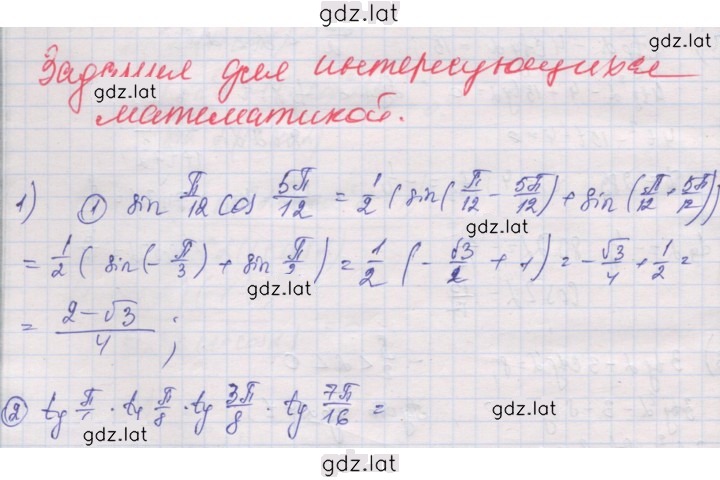 gdz.lat
Задания для интересующихся
gdz.lat
математикой.
gdz.lat
1) ① sin π/12 cos 5π/12 = 1/2 (sin(π/12 - 5π/12) + sin(π/12 + 5π/12))
= 1/2 (sin(-π/3) + sin π/2) = 1/2 (-√3/2 + 1) = -√3/4 + 1/2 =
gdz.lat
= (2-√3)/4 ;
② tg · tg π/8 · tg 3π/8 · tg 7π/16 =
gdz.lat
gdz.lat
gdz.lat